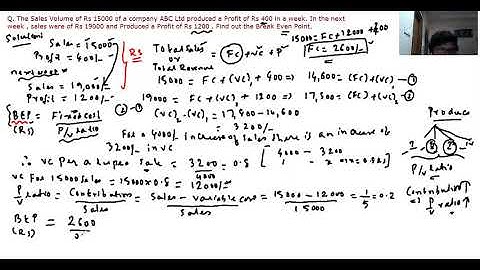 Q. The Sales Volume of Rs 15000 of a company ABC Ltd produced a Profit of Rs 400 in a week. In the next
week , sales were of Rs 19000 and Produced a Profit of Rs 1200 , Find out the Break Even Point.
Solution:
Sales = 15000
Profit = 400/-
next week
Sales = 19,000/-
Profit = 1200/-
Rs
Total Sales = FC + VC + P
or
Total Revenue
15000 = FC + 12000 + 400
FC = 2600/-
15000 = FC + (VC)1 + 400 ⇒ 14,600 = FC + (VC)1 -①
19000 = FC + (VC)2 + 1200 ⇒ 17,800 = FC + (VC)2 -②
②-① (VC)2 - (VC)1 = 17,800 - 14,600
= 3200/-
BEP = Fixed cost
(Rs) P/V ratio
For a 4000/- increase of sales there is an increase of
3200/- in VC
∴ VC per a rupee sale = 3200 = 0.8
4000
[ 4000 - 3200
VC for 15000 sales = 15000 x 0.8 = 12000/-
P/V ratio = Contribution = Sales - variable cost = 15000 - 12000 = 1 = 0.2
Sales Sales 15000 5
BEP = 2600
(Rs)
Produce
P/V ratio
Contribution ↑
⇒ P/V ratio ↑